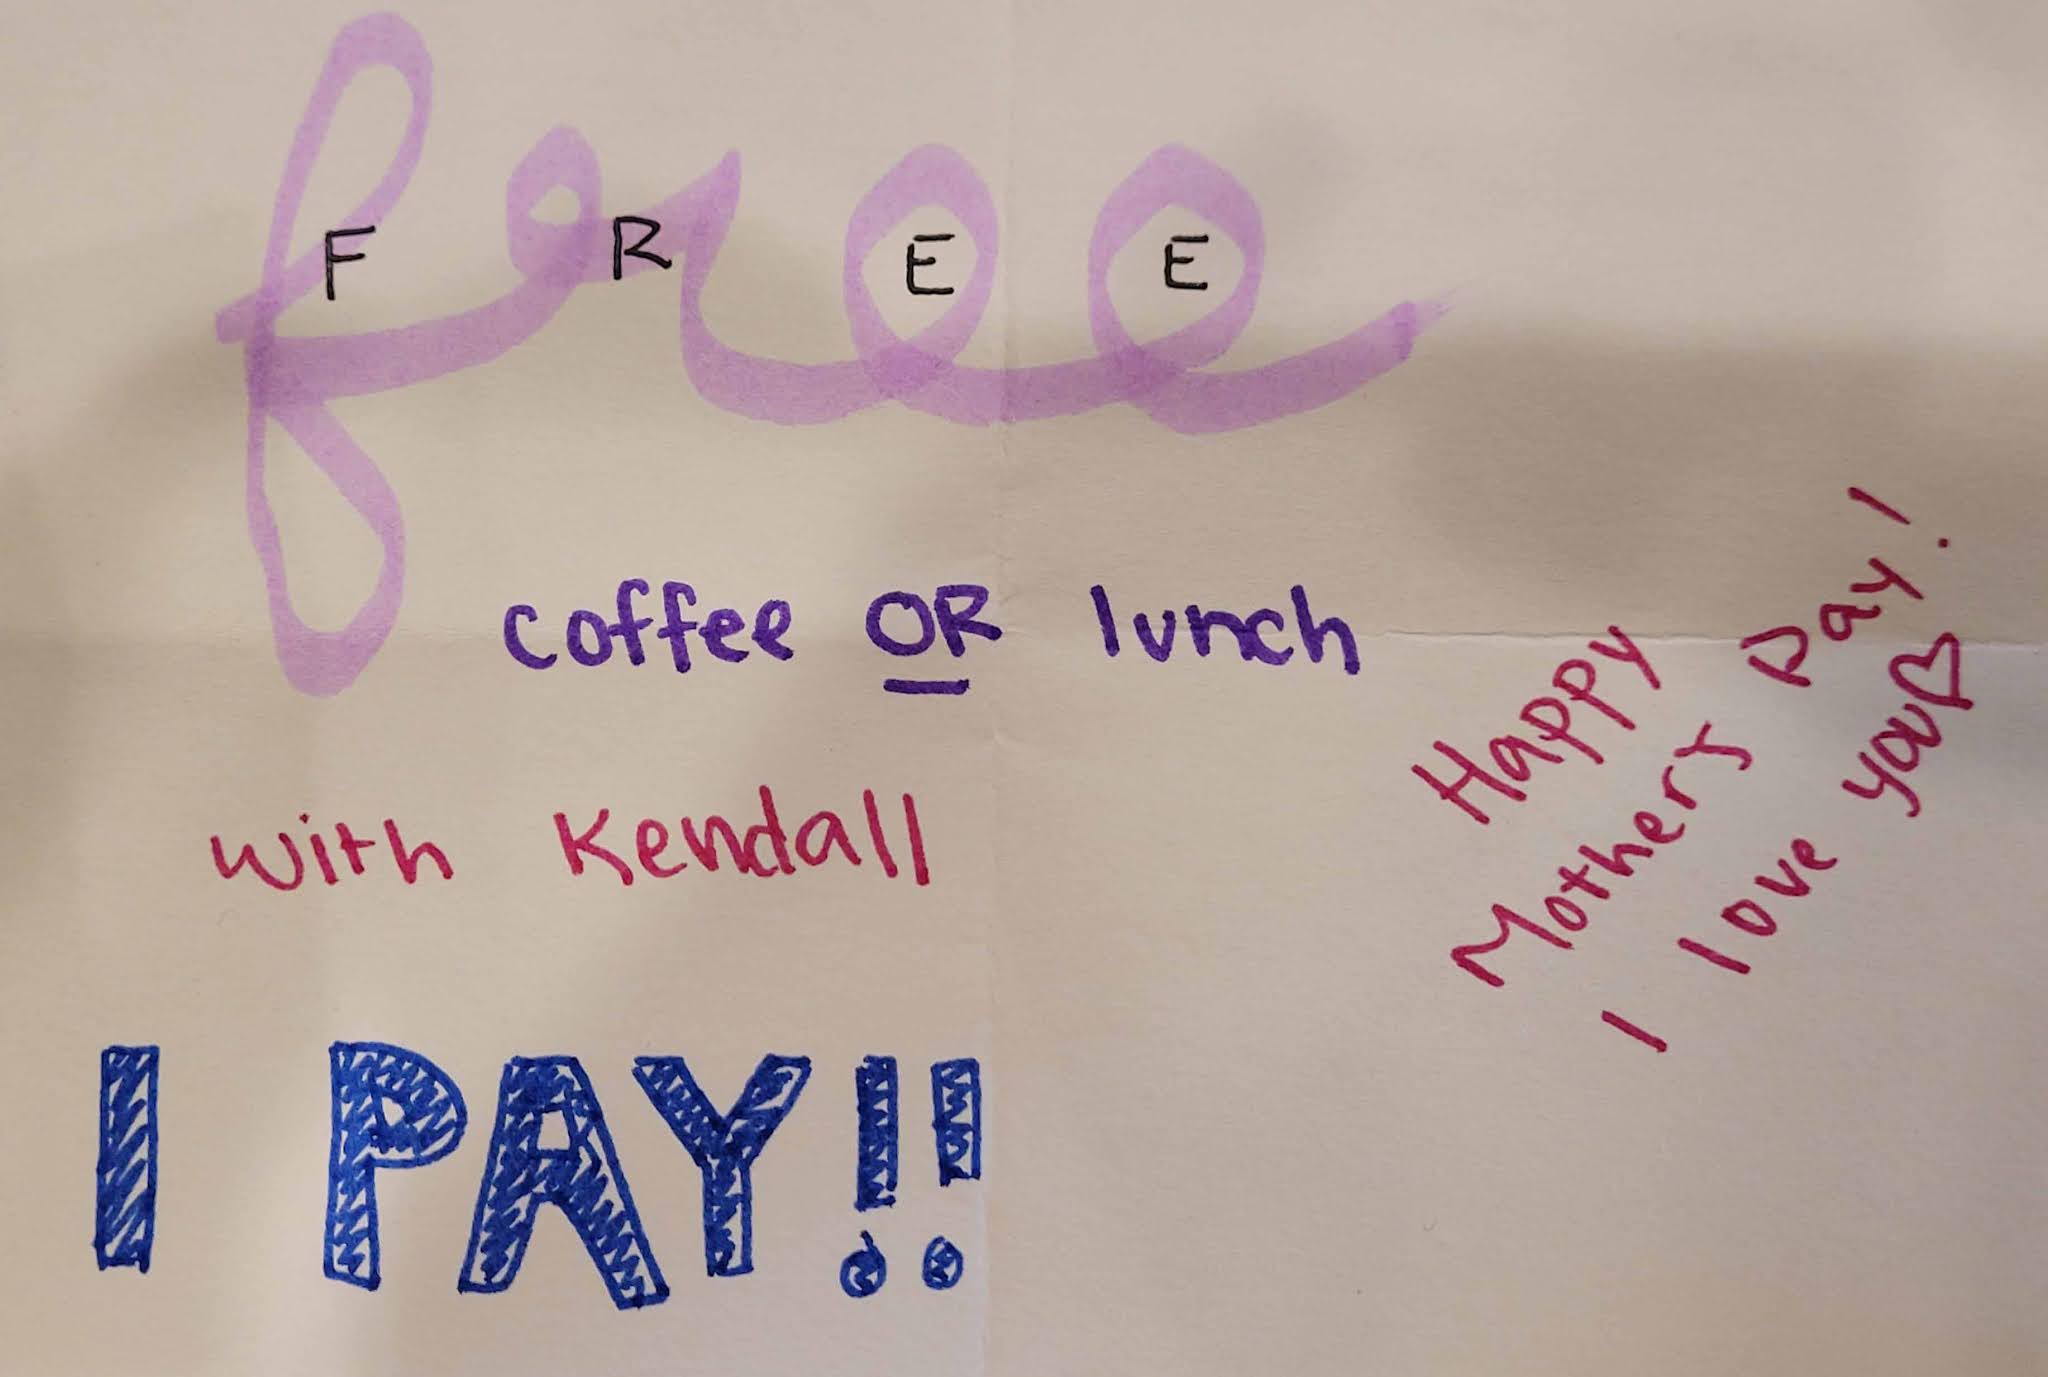 free
F R E E
coffee OR lunch
with Kendall
I PAY!!
Happy
Mothers Day!
I love you♡